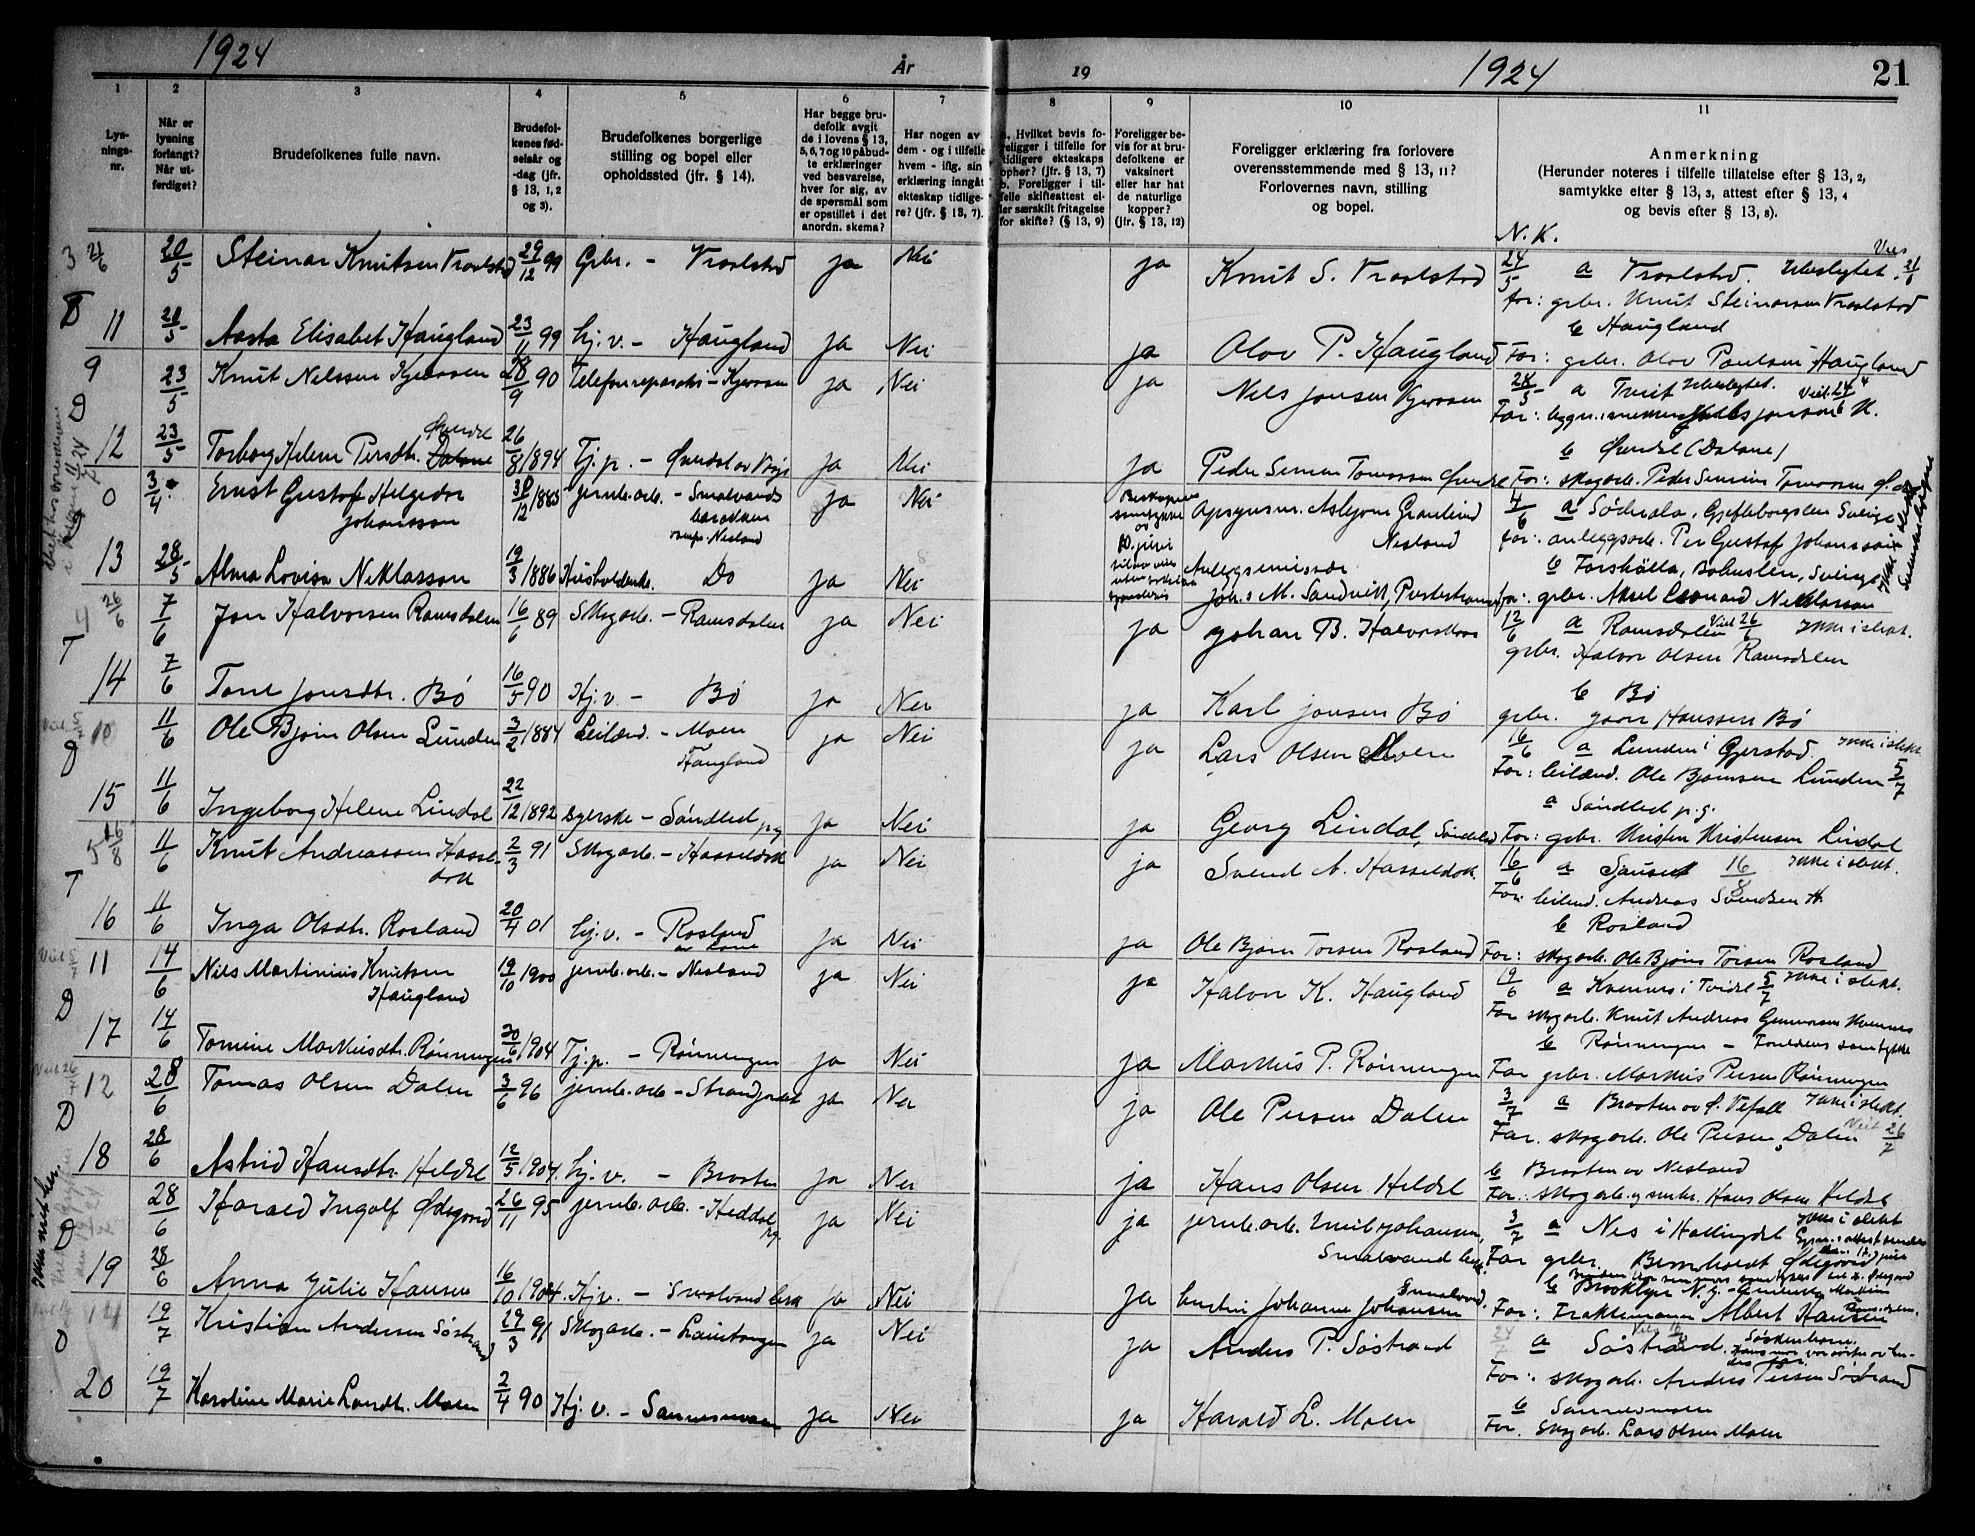 1924
År
19
1924
21
1
2
3
4
5
6
7
8
9
10
11
Lys-
nings-
nr.
Når er
lysning
forlangt?
Når ut-
ferdiget?
Brudefolkenes fulle navn.
Brudefol-
kenes fød-
selsår og
-dag (jfr.
§ 13, 1, 2
og 3).
Brudefolkenes borgerlige
stilling og bopel eller
opholdssted (jfr. § 14).
Har begge bru-
defolk avgit
de i lovens § 13,
5, 6, 7 og 10 påbud-
te erklæringer
ved besvarelse,
hver for sig, av
de spørsmål som
er opstillet i det
anordn. skema?
Har nogen av
dem - og i tilfelle
hvem - iflg. sin
erklæring inngåt
ekteskap tidlige-
re? (jfr. § 13, 7).
a. Hvilket bevis fo-
religger i tilfelle for
tidligere ekteskaps
ophør? (jfr. § 13, 7)
b. Foreligger i til-
felle skifteattest el-
ler særskilt fritagelse
for skifte? (§ 13, 9)
Foreligger be-
vis for at bru-
defolkene er
vaksinert
eller har hat
de naturlige
kopper?
(jfr. § 13, 12)
Foreligger erklæring fra forlovere
overensstemmende med § 13, 11?
Forlovernes navn, stilling
og bopel.
Anmerkning
(Herunder noteres i tilfelle tillatelse efter § 13, 2,
samtykke efter § 13, 3, attest efter § 13, 4
og bevis efter § 13, 8).
N. K.
3 21/6 20/5 Steinar Knutsen Vraalstad 29/12 99 Gbr. - Vraalstad ja Nei ja Knut S. Vraalstad 24/5 a Vraalstad. Ubeslegtet. Viet 21/6
for: gbr. Knut Steinarsen Vraalstad
b Haugland
11 20/5 Aasta Elisabet Haugland 23/11 99 hj.v. - Haugland ja Nei ja Olav P. Haugland For: gbr. Olav Paulsen Haugland
9 23/5 Knut Nilssen 28/9 90 ja Nei ja Nils Jonsen 28/5 a Tveit Ubeslegtet.
12 23/5 Torborg Helene Persdtr. 26/8 1894 Tj.p. - ja Nei ja Peder Simon Tomassen For: skogarb. Peder Simon Tomassen
0 3/4 Ernst Gustaf Helgedor 30/12 1885 jernb.arb. - Smalvands ja Nei 4/6 a Söderala, Gefleborgslen Sverige
Johansson barakken Nesland for: anleggsarb. Per Gustaf Johansson
13 28/5 Alma Lovisa Niklasson 19/3 1886 Husholderske. Do ja Nei Anleggsmissær b Forshälla, Bohuslen, Sverige
Joh.s M. Sandvik, for: gbr. Aksel Leonard Niklasson
4 26/6 7/6 Jon Halvorsen Ramsdalen 16/6 89 Skogarb. - Ramsdalen ja Nei ja Johan B. Halvorskaas 12/6 a Ramsdalen Viet 26/6 Ikke i slekt.
gbr. Halvor Olsen Ramsdalen
b Bø
14 7/6 Tone Jonsdtr. Bø 16/5 90 Hj.v. - Bø ja Nei ja Karl Jonsen Bø gbr. Jonn Hanssen Bø
10 11/6 Ole Bjørn Olsen Lunden 3/2 1884 Leilænd. - Moen ja Nei ja Lars Olsen Moen 16/6 a Lunden i Gjerstad Ikke i slekt.
Haugland For: leilænd. Ole Bjørnsen Lunden 5/7
a Søndled p.g.
15 11/6 Ingeborg Helene Lindal 22/12 1892 syerske - Søndled pg ja Nei ja Georg Lindal, Søndeled For: gbr. Kristen Kristensen Lindal
5 16/8 11/6 Knut Andreassen Hassel- 2/3 91 Skogarb. - Hasseldok ja Nei ja Svend A. Hasseldok 16/6 a 16/8 Ikke i slekt.
For: leilend. Andreas Svendsen H.
b Rosland
16 11/6 Inga Olsdtr. Rosland 20/4 01 hj.v. - Rosland ja Nei ja Ole Bjørn Torsen Rosland For: skogarb. Ole Bjørn Torsen Rosland
11 14/6 Nils Martinius Knutsen 19/10 1900 jernb.arb. - Nesland ja Nei ja Halvor K. Haugland 19/6 a 5/7 Ikke i slekt.
Haugland For skogarb. Knut Andreas Gunnarsen
b Rønningen - Foreldrenes samtykke
17 14/6 Tomine Markusdtr. Rønningen 20/6 1904 Tj.p. - Rønningen ja Nei ja Markus P. Rønningen For gbr. Markus Persen Rønningen
12 28/6 Tomas Olsen Dalen 3/6 96 jernb.arb - ja Nei ja Ole Persen Dalen 3/7 a Braaten ov Ø. Vefall Ikke i slekt.
For. skogarb. Ole Persen Dalen Viet 26/7
b Braaten ov Nesland
18 28/6 Astrid Hansdtr. Heldal 12/5 1904. hj.v. - Braaten ja Nei ja Hans Olsen Heldal For: skogarb. og smbr. Hans Olsen Heldal
28/6 Harald Ingolf Ødegaard 26/11 95 jernb.arb. - Heddal pg. ja Nei ja jernb.arb. Emil Johansen, 3/7 a Nes i Hallingdal Ikke i slekt
Smalvand For gbr. Bernhardt Ødegaard
b Brooklyn N.Y.
19 28/6 Anna Julie Hansen 16/10 1904. Hj.v. - Smalvand ja Nei ja Johanne Johansen Smalvand. For: Albert Hansen
14 19/7 Kristian Andersen Søstrand 29/3 91 Skogarb. - ja Nei ja Anders P. Søstrand 24/7 a Søstrand. Viet 16/8 Søskenbarn.
For: skogarb. Anders Persen Søstrand
b Sannesmoen
20 19/7 Karoline Marie Larsdtr. Moen 2/4 90 Hj.v. - Sannesmoen ja Nei ja Harald L. Moen For. Skogarb. Lars Olsen Moen